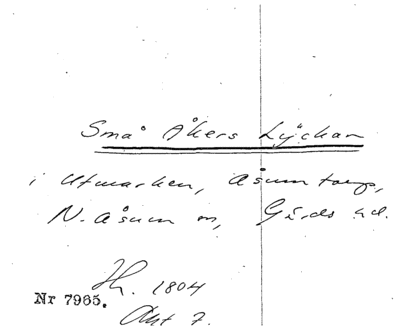 Små Åkers Lyckan
i Utmarken, Åsumtorp,
N. Åsum sn, Gärds hd.
Jh. 1804
Nr 7965.
Akt 7.